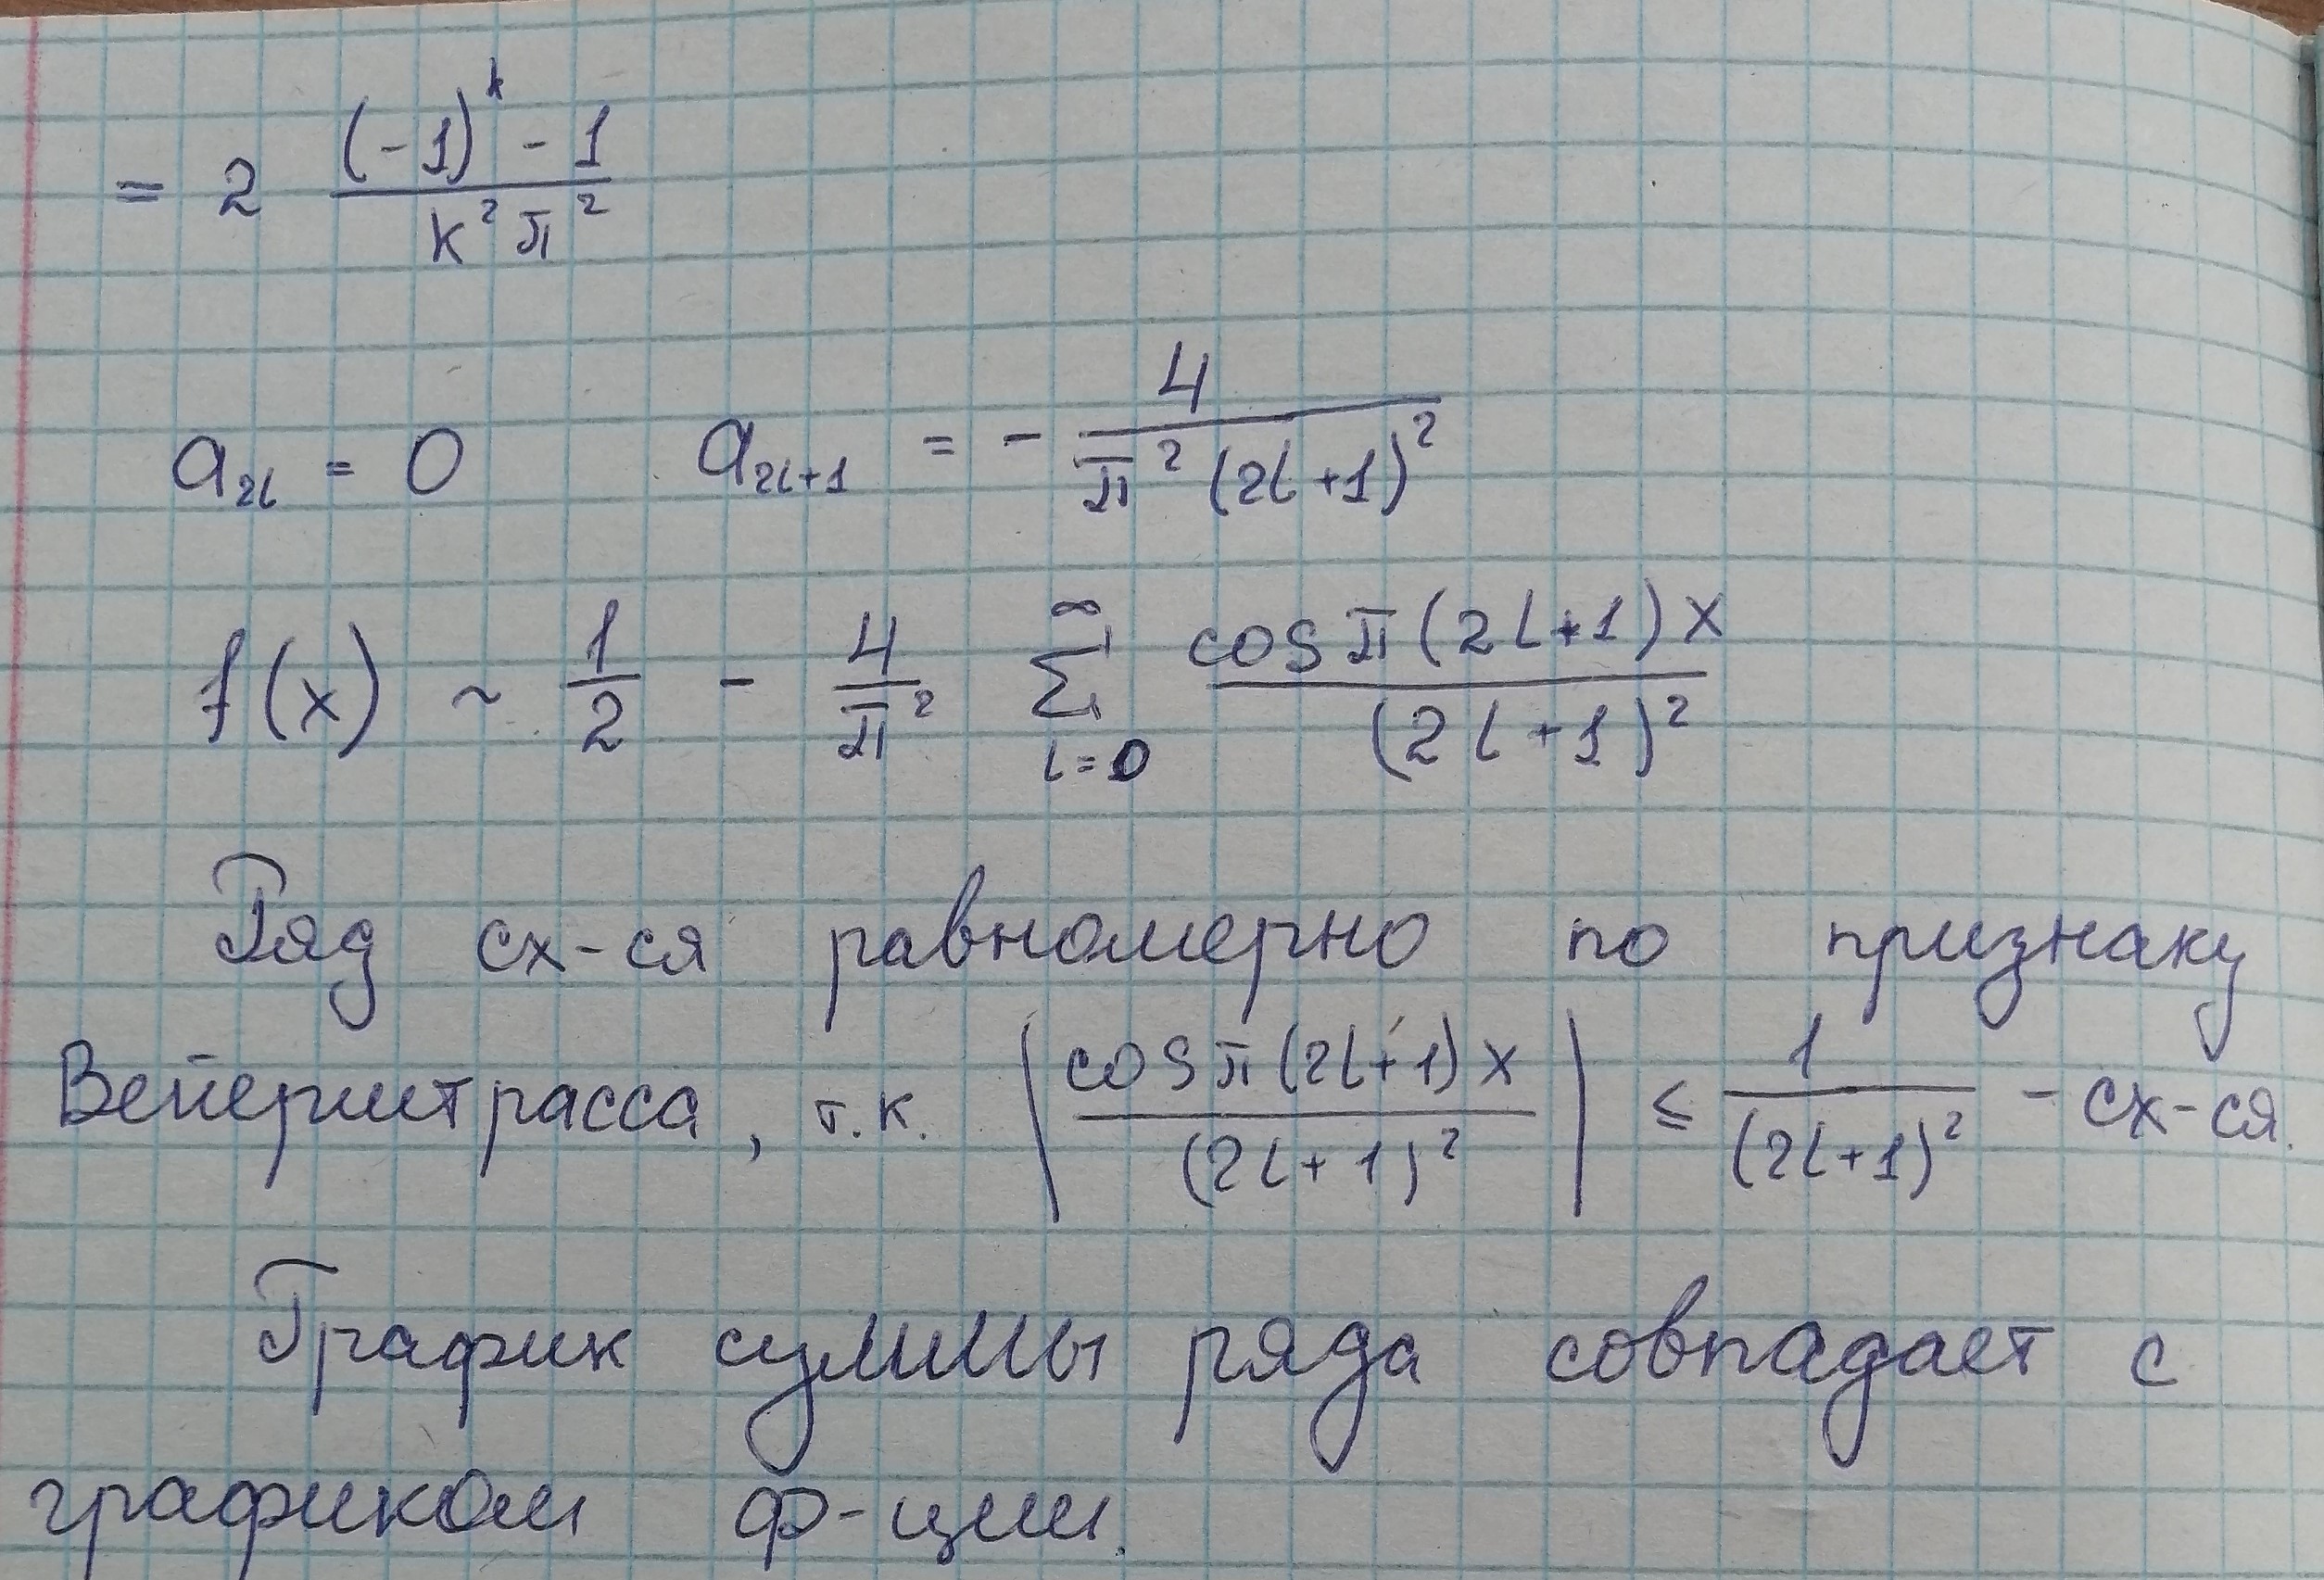 = 2 \frac{(-1)^k - 1}{k^2 π^2}
a_{2l} = 0    a_{2l+1} = - \frac{4}{π^2 (2l+1)^2}
f(x) ~ \frac{1}{2} - \frac{4}{π^2} \sum_{l=0}^{∞} \frac{cos π(2l+1)x}{(2l+1)^2}
Ряд сх-ся равномерно по признаку
Вейерштрасса, т.к. \left| \frac{cos π(2l+1)x}{(2l+1)^2} \right| ≤ \frac{1}{(2l+1)^2} - сх-ся.
График суммы ряда совпадает с
графиком ф-ции.